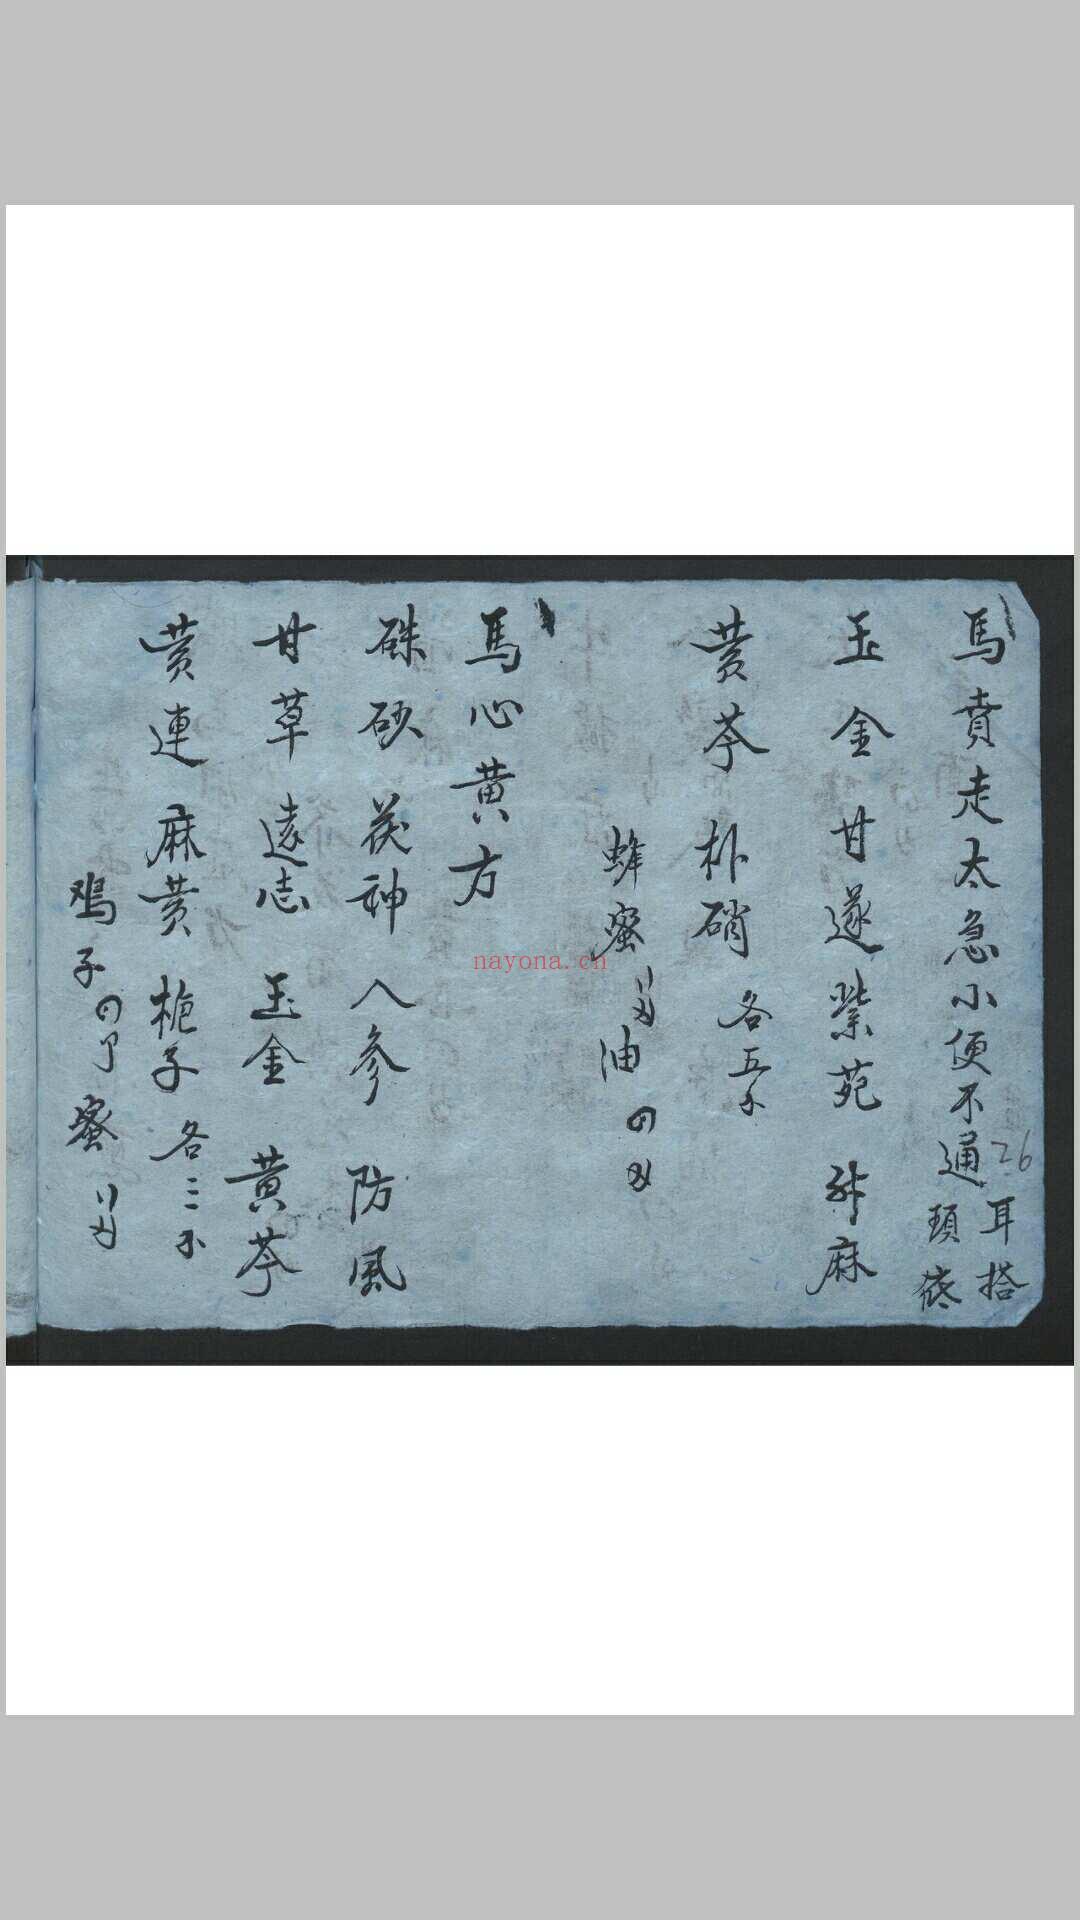 馬賁走太急小便不通
耳搭
頭
26
玉金 甘遂 紫苑 升麻
黄芩 朴硝 各五个
蜂蜜 油
馬心黄方
硃砂 茯神 人参 防風
甘草 遠志 玉金 黄芩
黄連 麻黄 栀子 各三个
鸡子 蜜
nayona.cn